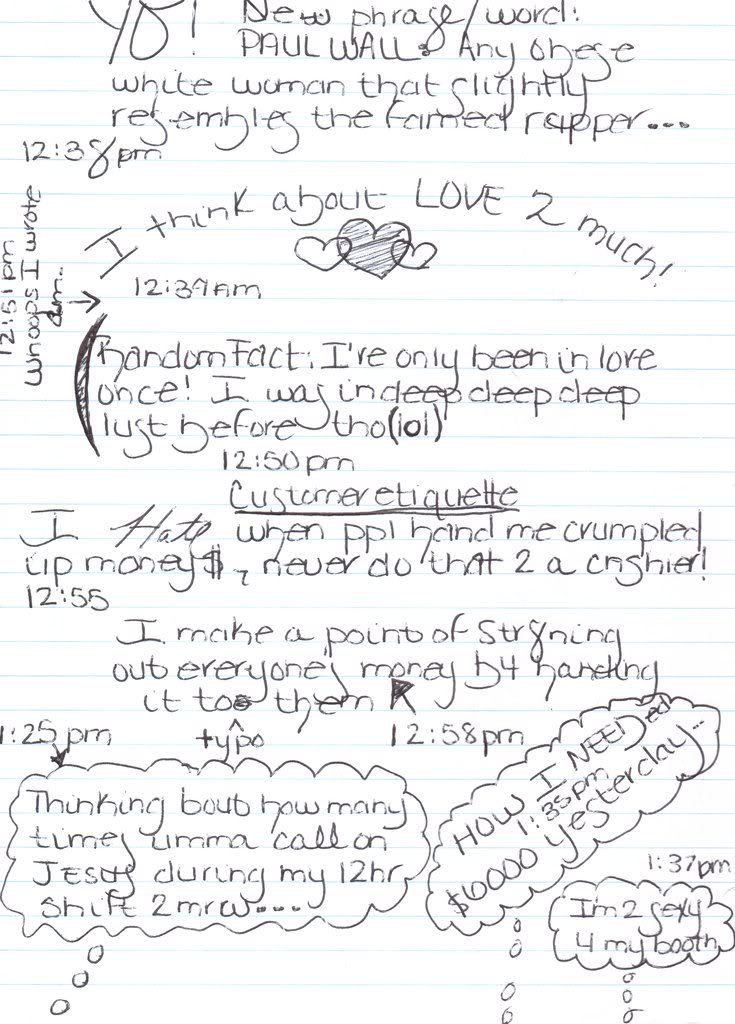 YO! New phrase/word:
PAUL WALL: Any obese
white woman that slightly
resembles the famed rapper...
12:38pm
I think about LOVE 2 much!
12:39am
12:51pm
Whoops I wrote
am..
(Random Fact: I've only been in love
once! I was in deep deep deep
lust before tho (lol)
12:50pm
Customer etiquette
I Hate when ppl hand me crumpled
up money$, never do that 2 a cashier!
12:55
I make a point of str8ning
out everyones money b4 handing
it too them R
typo
12:58pm
1:25pm
Thinking bout how many
times imma call on
JESUS during my 12hr
shift 2mrw....
HOW I NEEDed
1:35pm
$6000 yesterday...
1:37pm
Im 2 sexy
4 my booth